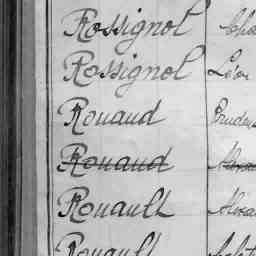 Rossignol
Rossignol Léon
Rouaud
Rouaud
Rouault
Rouault